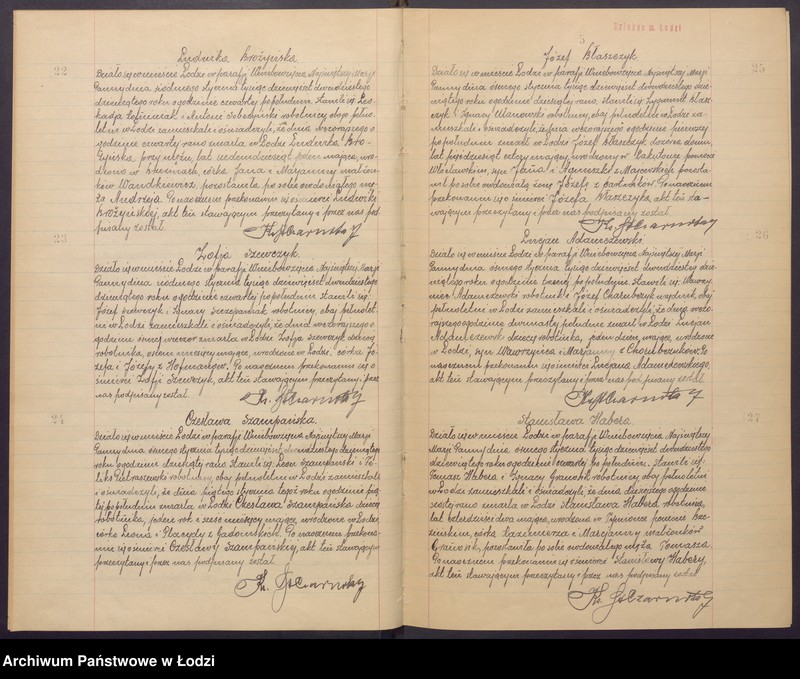 22
Ludwika Brożyńska
Działo się w mieście Łodzi w parafji Wniebowzięcia Najświętszej Marji
Panny dnia siódmego stycznia tysiąc dziewięćset dwudziestego
dziewiątego roku o godzinie czwartej po południu. Stawili się
i Antoni robotnicy obaj pełno-
letni w Łodzi zamieszkali i oświadczyli, że dnia wczorajszego o
godzinie czwartej rano zmarła w Łodzi Ludwika Bro-
żyńska przy mężu, lat siedemdziesiąt jeden mająca, uro-
dzona w córka Jana i Marjanny małżon-
ków pozostawiła po sobie owdowiałego mę-
ża Andrzeja. Po naocznem przekonaniu się o śmierci Ludwiki
Brożyńskiej, akt ten stawającym przeczytany i przez nas pod-
pisany został.
23
Zofja Szewczyk.
Działo się w mieście Łodzi w parafji Wniebowzięcia Najświętszej Marji
Panny dnia siódmego stycznia tysiąc dziewięćset dwudziestego
dziewiątego roku o godzinie czwartej po południu. Stawili się
Józef Szewczyk i Ignacy Szczepaniak robotnicy, obaj pełnolet-
ni w Łodzi zamieszkali i oświadczyli, że dnia wczorajszego o
godzinie ósmej wieczór zmarła w Łodzi Zofja Szewczyk dziecię
robotnika, osiem miesięcy mająca, urodzona w Łodzi. córka Jó-
zefa i Józefy z Po naocznem przekonaniu się o
śmierci Zofji Szewczyk, akt ten stawającym przeczytany i przez
nas podpisany został.
24
Czesława Szampańska.
Działo się w mieście Łodzi w parafji Wniebowzięcia Najświętszej Marji
Panny dnia ósmego stycznia tysiąc dziewięćset dwudziestego dziewiątego
roku o godzinie dziesiątej rano. Stawili się Leon Szampański i Fe-
liks Pietraszewski robotnicy, obaj pełnoletni w Łodzi zamieszkali
i oświadczyli, że dnia piątego stycznia tegoż roku o godzinie pią-
tej po południu zmarła w Łodzi Czesława Szampańska dziecię
robotnika, jeden rok i sześć miesięcy mająca, urodzona w Łodzi,
córka Leona i z Po naocznem przekona-
niu się o śmierci Czesławy Szampańskiej, akt ten stawającym
przeczytany i przez nas podpisany został.
5
25
Józef Błaszczyk
Działo się w mieście Łodzi w parafji Wniebowzięcia Najświętszej Marji
Panny dnia ósmego stycznia tysiąc dziewięćset dwudziestego dzie-
wiątego roku o godzinie dziesiątej rano, stawili się Zygmunt Błasz-
czyk i Ignacy robotnicy, obaj pełnoletni w Łodzi za-
mieszkali i oświadczyli, że dnia wczorajszego o godzinie pierwszej
po południu zmarł w Łodzi Józef Błaszczyk dozorca domu,
lat pięćdziesiąt cztery mający, urodzony w powiecie
Włocławskim, syn Jana i Agnieszki z pozosta-
wił po sobie owdowiałą żonę Józefę z Po naocznem
przekonaniu się o śmierci Józefa Błaszczyka, akt ten sta-
wającym przeczytany i przez nas podpisany został.
26
Lucjan Adamczewski.
Działo się w mieście Łodzi w parafji Wniebowzięcia Najświętszej Marji
Panny dnia ósmego stycznia tysiąc dziewięćset dwudziestego dzie-
wiątego roku o godzinie po południu. Stawili się Wawrzy-
niec Adamczewski robotnik i Józef obaj peł-
noletni w Łodzi zamieszkali i oświadczyli, że dnia wczo-
rajszego o godzinie dwunastej w południe zmarł w Łodzi Lucjan
Adamczewski dziecię robotnika, jeden dzień mające, urodzone
w Łodzi, syn Wawrzyńca i Marjanny z Po
naocznem przekonaniu się o śmierci Lucjana Adamczewskiego,
akt ten stawającym przeczytany i przez nas podpisany został.
27
Stanisława Habera.
Działo się w mieście Łodzi w parafji Wniebowzięcia Najświętszej
Marji Panny dnia ósmego stycznia tysiąc dziewięćset dwudziestego
dziewiątego roku o godzinie czwartej po południu, stawili się:
Tomasz Habera i Ignacy robotnicy obaj pełnoletni
w Łodzi zamieszkali i oświadczyli, że dnia dzisiejszego o godzinie
szóstej rano zmarła w Łodzi Stanisława Habera robotnica,
lat czterdzieści dwa mająca, urodzona w powiecie Brze-
zińskim, córka Kazimierza i Marjanny małżonków
pozostawiła po sobie owdowiałego męża Tomasza.
Po naocznem przekonaniu się o śmierci Stanisławy Habery,
akt ten stawającym przeczytany i przez nas podpisany został
Archiwum Państwowe w Łodzi